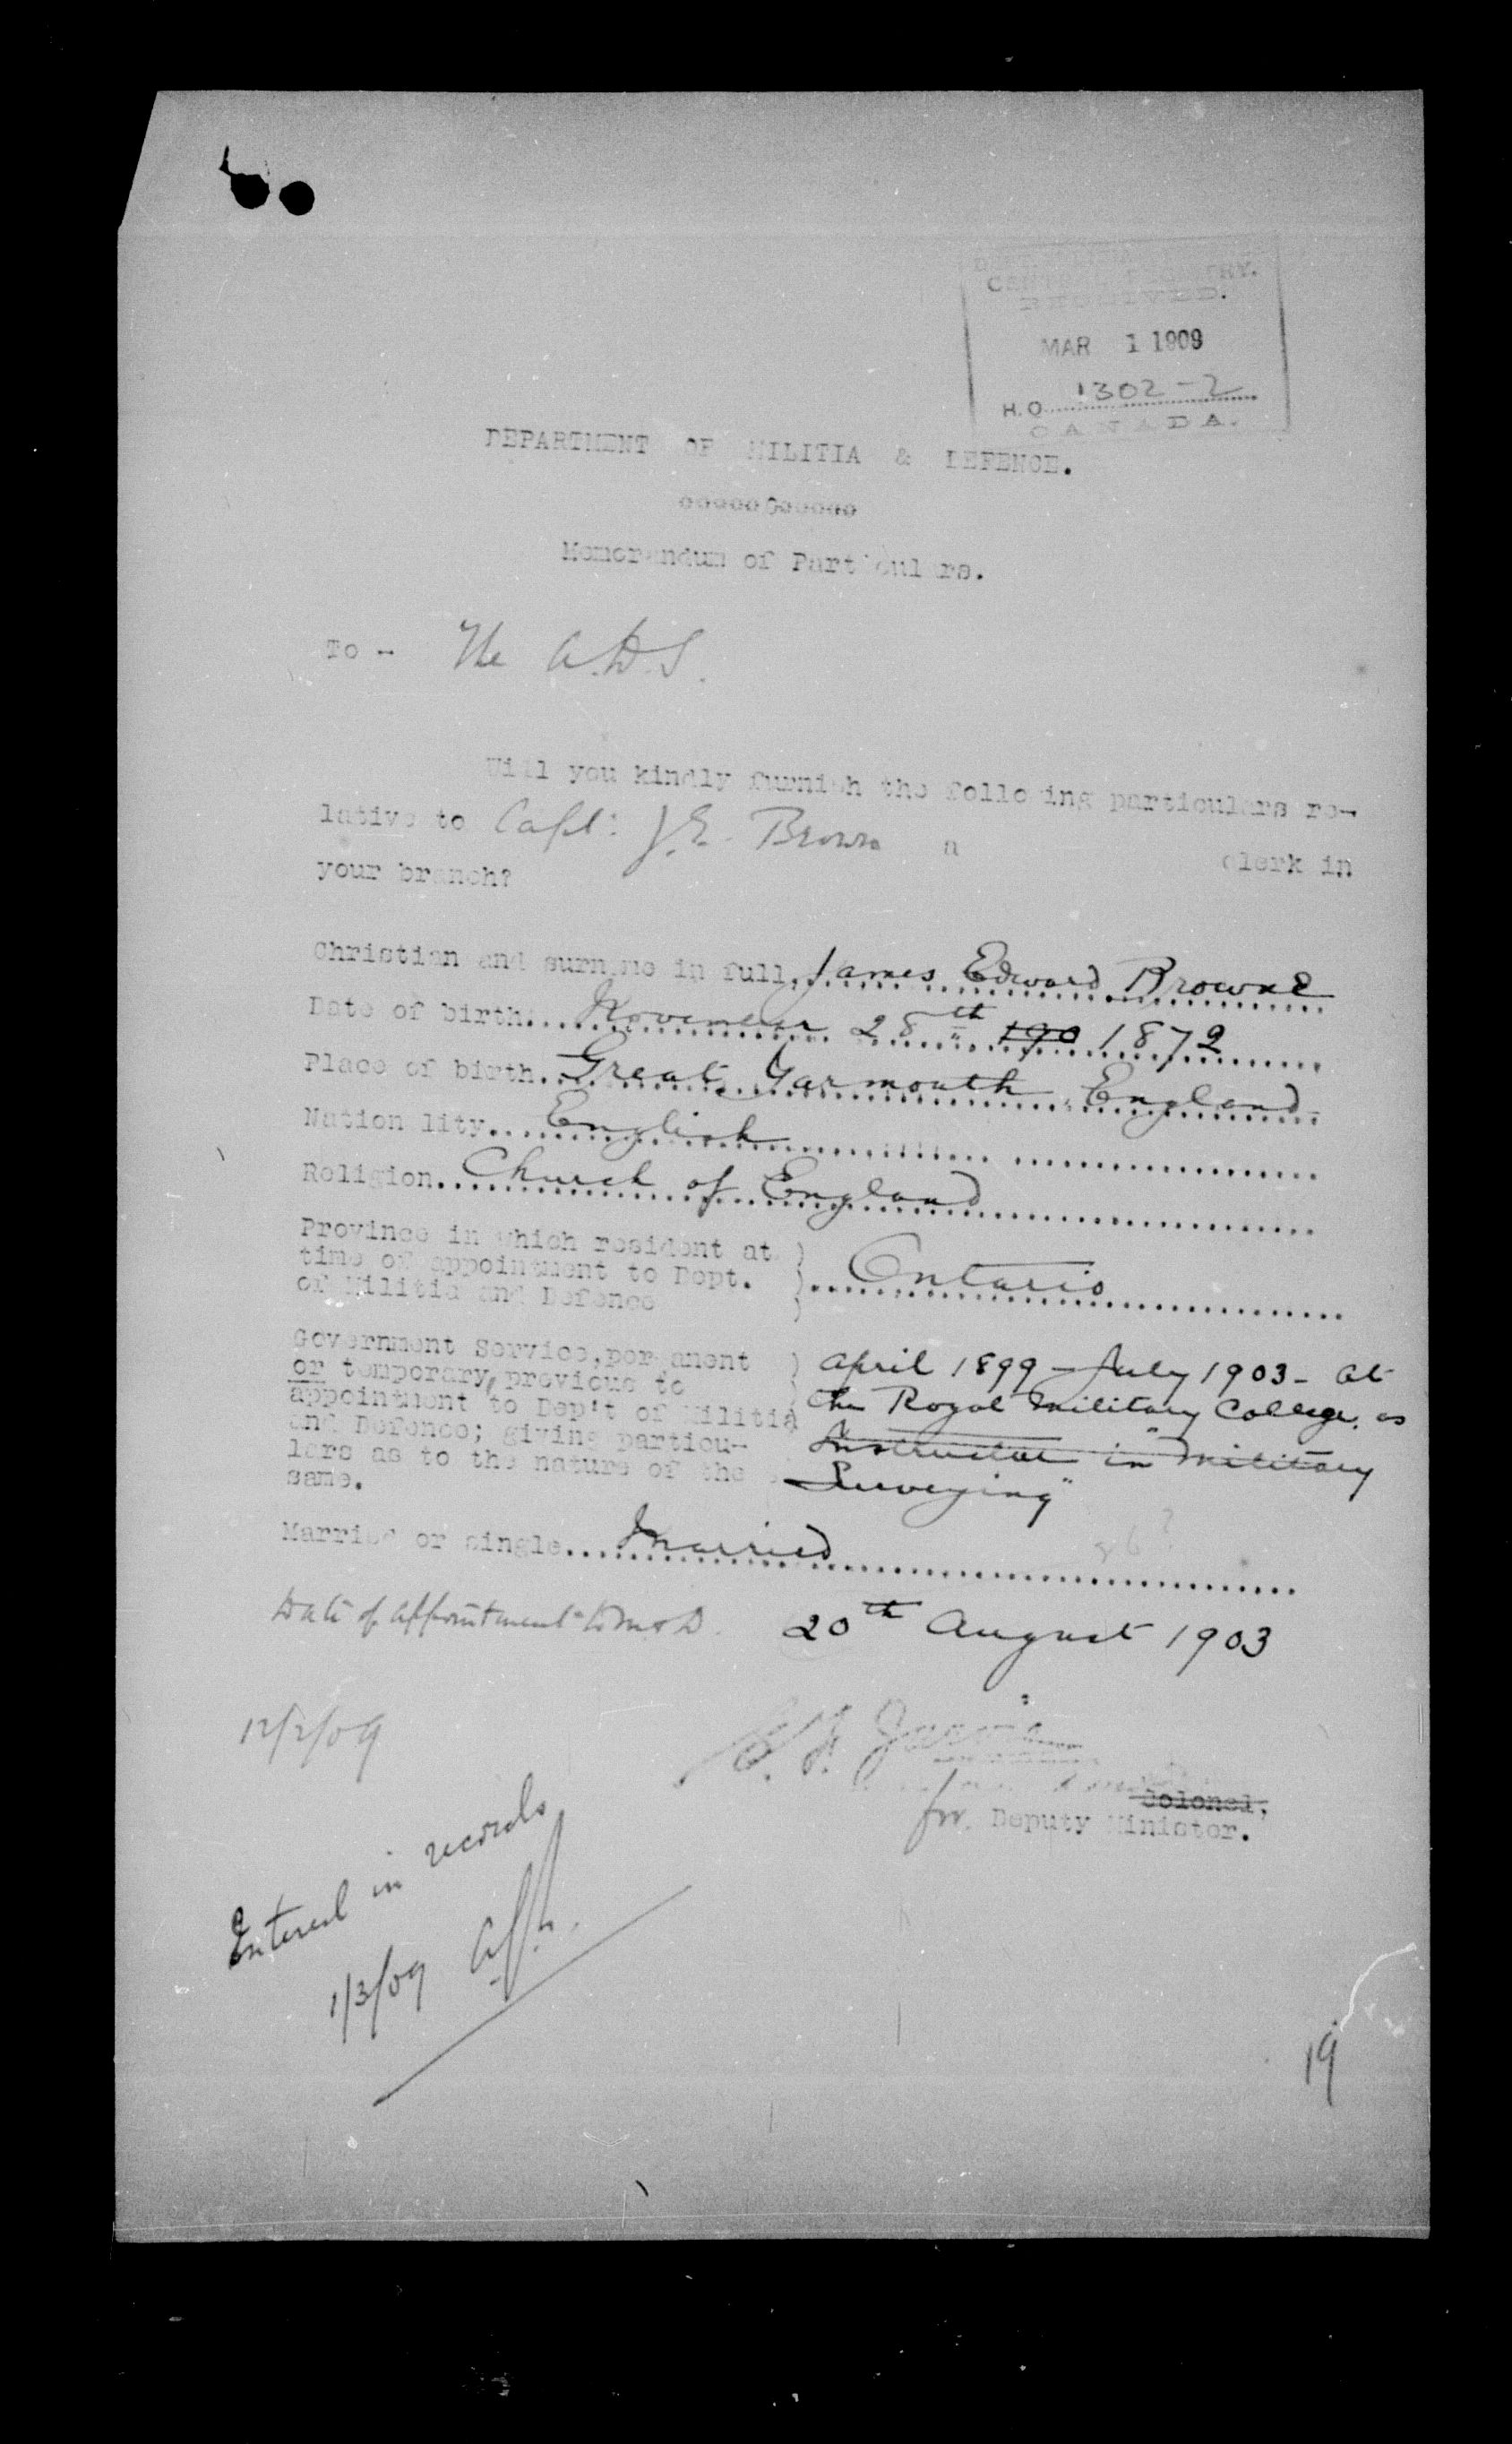 CENTRAL REGISTRY.
RECEIVED.
MAR 1 1909
H.Q. 1302-2
CANADA.
DEPARTMENT OF MILITIA & DEFENCE.
ooooo0ooooo
Memorandum of Particulars.
To - The A.D.S.
Will you kindly furnish the following particulars re-
lative to Capt: J.E. Brown a clerk in
your branch?
Christian and surname in full. James Edward Browne
Date of birth. November 28th 190 1872
Place of birth. Great Yarmouth England
Nationality. English
Religion. Church of England
Province in which resident at
time of appointment to Dept.
of Militia and Defence
Ontario
Government Service, permanent
or temporary, previous to
appointment to Dep't of Militia
and Defence; giving particu-
lars as to the nature of the
same.
April 1899 - July 1903 - at
the Royal Military College. as
"Instructor in Military
Surveying"
Married or single. Married
Date of appointment to M & D. 20th August 1903
12/2/09
Colonel,
for Deputy Minister.
Entered in records
1/3/09
19